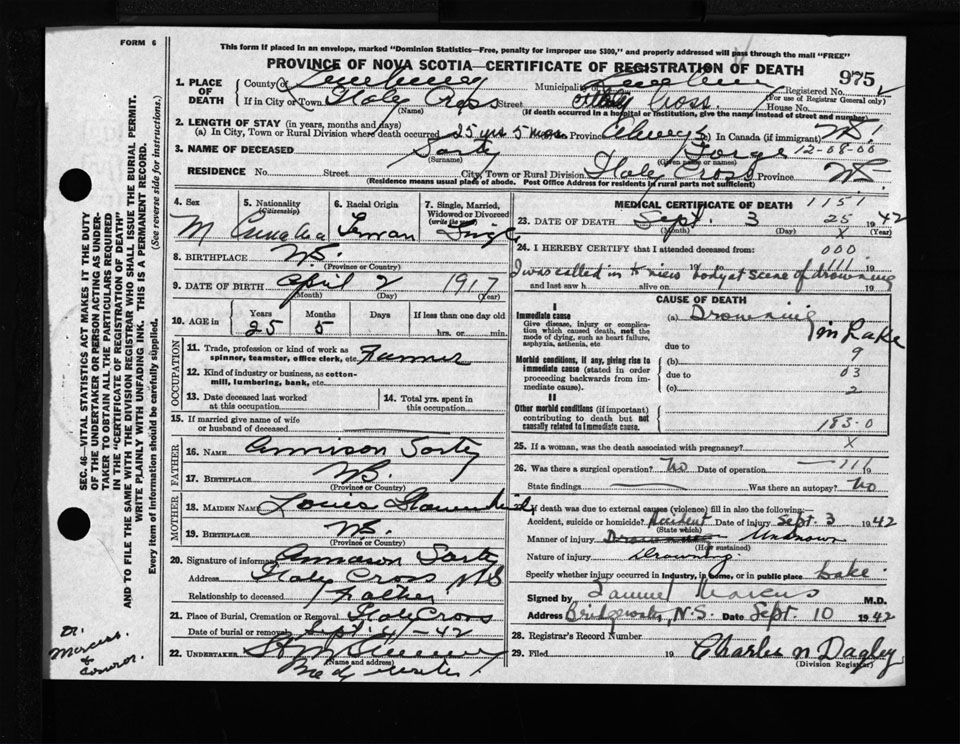 FORM 6
This form if placed in an envelope, marked "Dominion Statistics—Free, penalty for improper use $300," and properly addressed will pass through the mail "FREE"
PROVINCE OF NOVA SCOTIA—CERTIFICATE OF REGISTRATION OF DEATH
975
1. PLACE OF DEATH
County of
Municipality of
Registered No.
(For use of Registrar General only)
If in City or Town
(Name)
Street
Cross
House No.
(If death occurred in a hospital or institution, give the name instead of street and number)
2. LENGTH OF STAY (in years, months and days)
(a) In City, Town or Rural Division where death occurred 25 yrs 5 mos. Province Always In Canada (if immigrant)
3. NAME OF DECEASED Sarty
(Surname)
(Given name or names)
12-08-00
RESIDENCE No. Street City, Town or Rural Division Cross Province
(Residence means usual place of abode. Post Office Address for residents in rural parts not sufficient)
4. Sex M
5. Nationality (Citizenship) Canada
6. Racial Origin German
7. Single, Married, Widowed or Divorced (write the word) Single
8. BIRTHPLACE N.S.
(Province or Country)
9. DATE OF BIRTH April 2 1917
(Month) (Day) (Year)
10. AGE in Years 25 Months 5 Days If less than one day old
hrs. or min.
OCCUPATION
11. Trade, profession or kind of work as spinner, teamster, office clerk, etc. Farmer
12. Kind of industry or business, as cotton-mill, lumbering, bank, etc.
13. Date deceased last worked at this occupation
14. Total yrs. spent in this occupation
15. If married give name of wife or husband of deceased
FATHER
16. NAME Sarty
17. BIRTHPLACE N.S.
(Province or Country)
MOTHER
18. MAIDEN NAME
19. BIRTHPLACE N.S.
(Province or Country)
20. Signature of informant Sarty
Address Cross N.S
Relationship to deceased Father
21. Place of Burial, Cremation or Removal Cross
Date of burial or removal Sept 42
22. UNDERTAKER
(Name and address)
Bridgewater
MEDICAL CERTIFICATE OF DEATH
1151
23. DATE OF DEATH Sept. 3 25 1942
(Month) (Day) X (Year)
24. I HEREBY CERTIFY that I attended deceased from:
000
19 to 19
I was called in to view body at scene of drowning
and last saw h alive on 19
CAUSE OF DEATH
Immediate cause
Give disease, injury or complication which caused death, not the mode of dying, such as heart failure, asphyxia, asthenia, etc.
(a) Drowning in Lake
due to
9
Morbid conditions, if any, giving rise to immediate cause (stated in order proceeding backwards from immediate cause).
(b)
03
due to
2
(c)
Other morbid conditions (if important) contributing to death but not causally related to immediate cause.
183-0
25. If a woman, was the death associated with pregnancy? X
26. Was there a surgical operation? No Date of operation 111 19
State findings Was there an autopsy? No
If death was due to external causes (violence) fill in also the following:
Accident, suicide or homicide? Accident Date of injury Sept. 3 1942
(State which)
Manner of injury Drowning Unknown
(How sustained)
Nature of injury Drowning
Specify whether injury occurred in Industry, in home, or in public place Lake
Signed by Samuel Marcus M.D.
Address Bridgewater, N.S. Date Sept. 10 1942
28. Registrar's Record Number
29. Filed 19 Charles N Dagley
(Division Registrar)
SEC. 46—VITAL STATISTICS ACT MAKES IT THE DUTY
OF THE UNDERTAKER OR PERSON ACTING AS UNDER-
TAKER TO OBTAIN ALL THE PARTICULARS REQUIRED
IN THE "CERTIFICATE OF REGISTRATION OF DEATH"
AND TO FILE THE SAME WITH THE DIVISION REGISTRAR WHO SHALL ISSUE THE BURIAL PERMIT.
WRITE PLAINLY WITH UNFADING INK. THIS IS A PERMANENT RECORD.
Every item of information should be carefully supplied.
(See reverse side for instructions.)
Dr.
Marcus